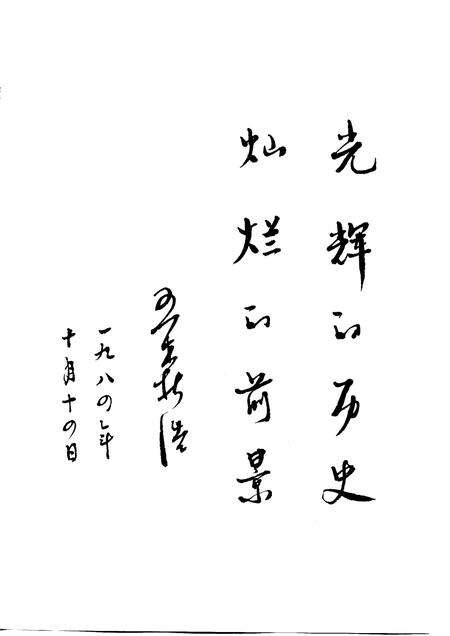 光辉的历史
灿烂的前景
一九八四年
十月十四日